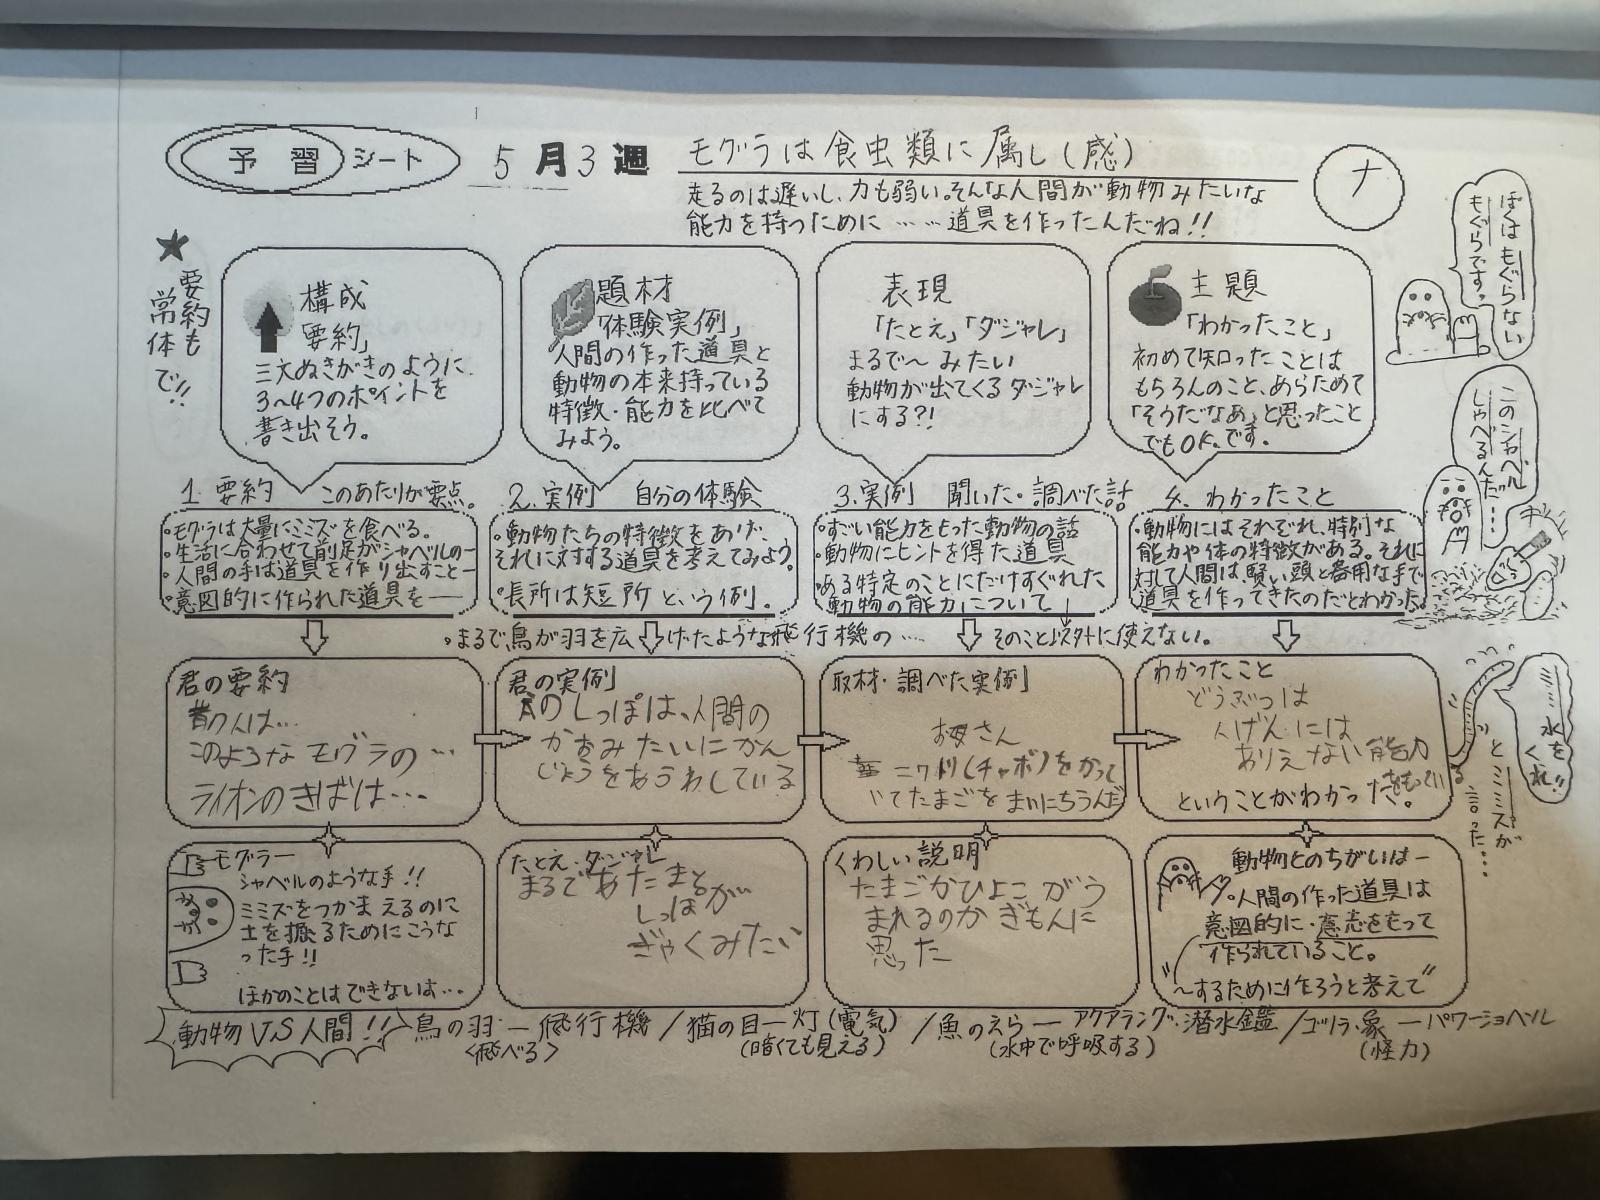 予習シート
5月3週
モグラは食虫類に属し(感)
ナ
走るのは遅いし、力も弱い。そんな人間が動物みたいな
能力を持つために……道具を作ったんだね!!
★要約も
常体
で!!
構成
要約」
三文ぬきがきのように、
3~4つのポイントを
書き出そう。
題材
「体験実例」
人間の作った道具と
動物の本来持っている
特徴・能力を比べて
みよう。
表現
「たとえ」「ダジャレ」
まるで~みたい
動物が出てくるダジャレ
にする?!
主題
「わかったこと」
初めて知ったことは
もちろんのこと、あらためて
「そうだなあ」と思ったこと
でもOK。です。
ぼくはもぐらない
もぐらです。
このシャベル、
しゃべるんだ…
1.要約 このあたりが要点。
・モグラは大量にミミズを食べる。
・生活に合わせて前足がシャベルの―
・人間の手は道具を作り出すこと―
・意図的に作られた道具を――
2.実例 自分の体験
・動物たちの特徴をあげ、
それに対する道具を考えてみよう。
・長所は短所という例。
3.実例 聞いた・調べた話
・すごい能力をもった動物の話
・動物にヒントを得た道具
・ある特定のことにだけすぐれた
動物の能力について
4.わかったこと
・動物にはそれぞれ、特別な
能力や体の特徴がある。それに
対して人間は、賢い頭と器用な手で
道具を作ってきたのだとわかった。
・まるで鳥が羽を広げたような飛行機の……
そのこと以外に使えない。
君の要約
昔の人は…
このようなモグラの…
ライオンのきばは…
君の実例
のしっぽは、人間の
かおみたいにかん
じょうをあらわしている
取材・調べた実例」
お母さん
ニワトリ(チャボ)をかって
いてたまごをまいにちうんだ
わかったこと
どうぶつは
人げんには
ありえない能力
をもっている
ということがわかった。
水を
くれ!!
とミミズが
言った…
モグラー
シャベルのような手!!
ミミズをつかまえるのに
土を掘るためにこうな
った手!!
ほかのことはできないは…
たとえ・ダジャレ
まるであたまと
しっぽが
ぎゃくみたい
くわしい説明
たまごがひよこがう
まれるのかぎもんに
思った
動物とのちがいは―
・人間の作った道具は
意図的に・意志をもって
作られていること。
"~するために作ろうと考えて"
動物VS人間!!
鳥の羽―飛行機/猫の目―灯(電気)/魚のえら―アクアラング・潜水鑑/ゴリラ・象―パワーショベル
<飛べる> (暗くても見える) (水中で呼吸する) (怪力)